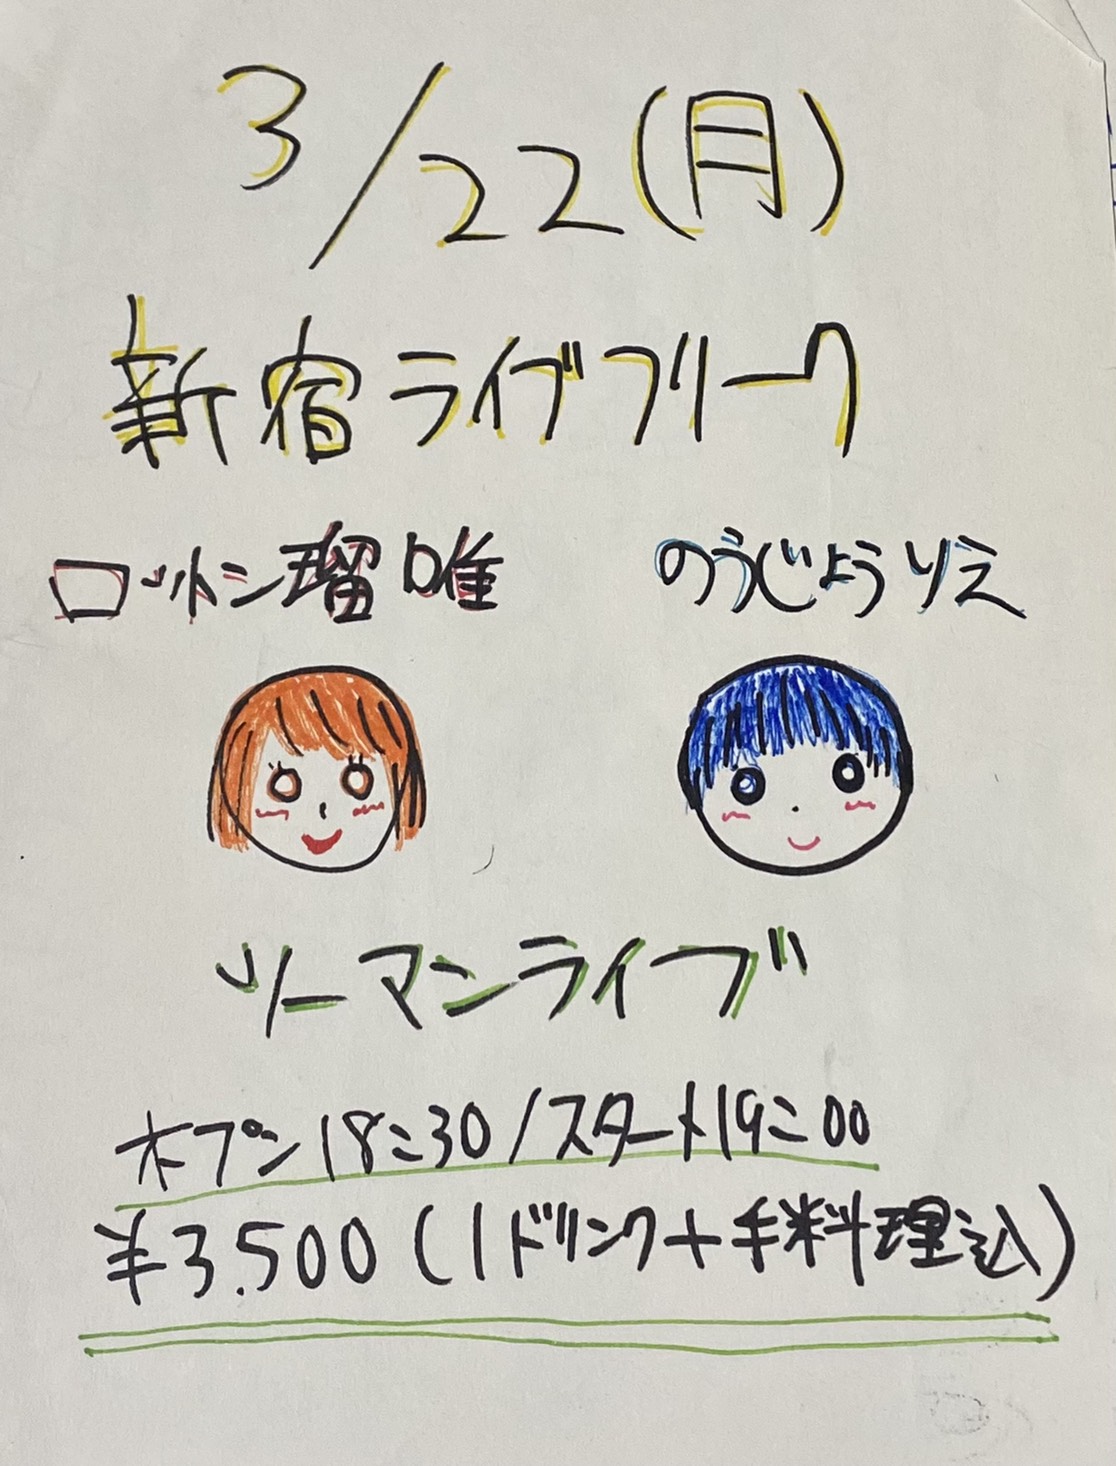 3/22(月)
新宿ライブフリーク
ロットン瑠唯 のうじょうりえ
ツーマンライブ
オープン18:30/スタート19:00
¥3.500(1ドリンク+手料理込)